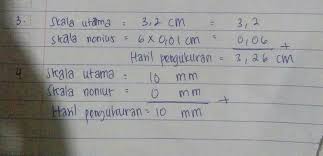 3. Skala utama = 3,2 cm = 3,2
Skala nonius = 6 x 0,01 cm = 0,06 +
Hasil pengukuran = 3,26 cm
4 Skala utama = 10 mm
Skala nonius = 0 mm +
Hasil pengukuran = 10 mm